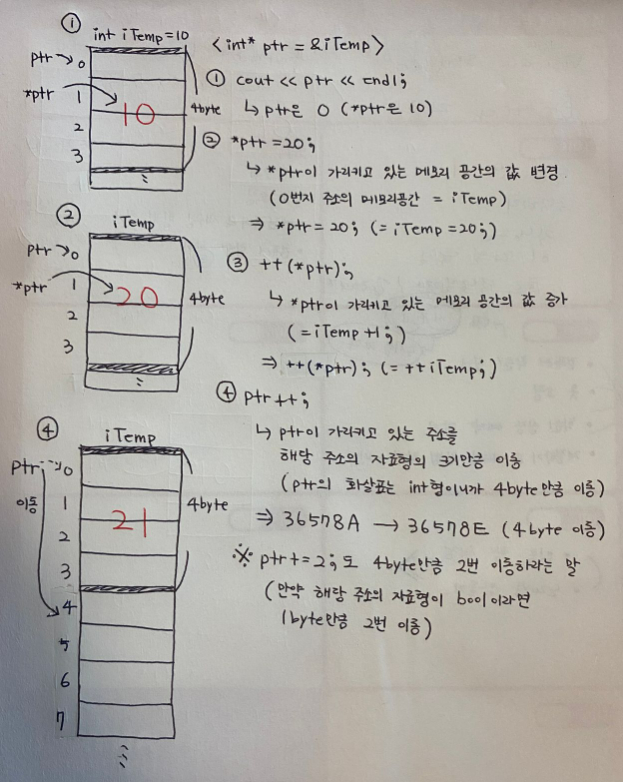 ①
int iTemp=10
ptr→0
*ptr
1
2
3
10
4byte
⋮
②
iTemp
ptr→0
*ptr
1
2
3
20
4byte
⋮
④
iTemp
ptr→0
이동
1
2
3
4
5
6
7
21
4byte
⋮
<int* ptr = &iTemp>
① cout << ptr << endl;
↳ ptr은 0 (*ptr은 10)
② *ptr = 20;
↳ *ptr이 가리키고 있는 메모리 공간의 값 변경.
(0번지 주소의 메모리공간 = iTemp)
⇒ *ptr = 20; (= iTemp = 20;)
③ ++(*ptr);
↳ *ptr이 가리키고 있는 메모리 공간의 값 증가
(= iTemp +1;)
⇒ ++(*ptr); (= ++iTemp;)
④ ptr++;
↳ ptr이 가리키고 있는 주소를
해당 주소의 자료형의 크기만큼 이동
(ptr의 화살표는 int형이니까 4byte만큼 이동)
⇒ 36578A → 36578E (4byte 이동)
※ ptr+=2;도 4byte만큼 2번 이동하라는 말
(만약 해당 주소의 자료형이 bool이라면
1byte만큼 2번 이동)